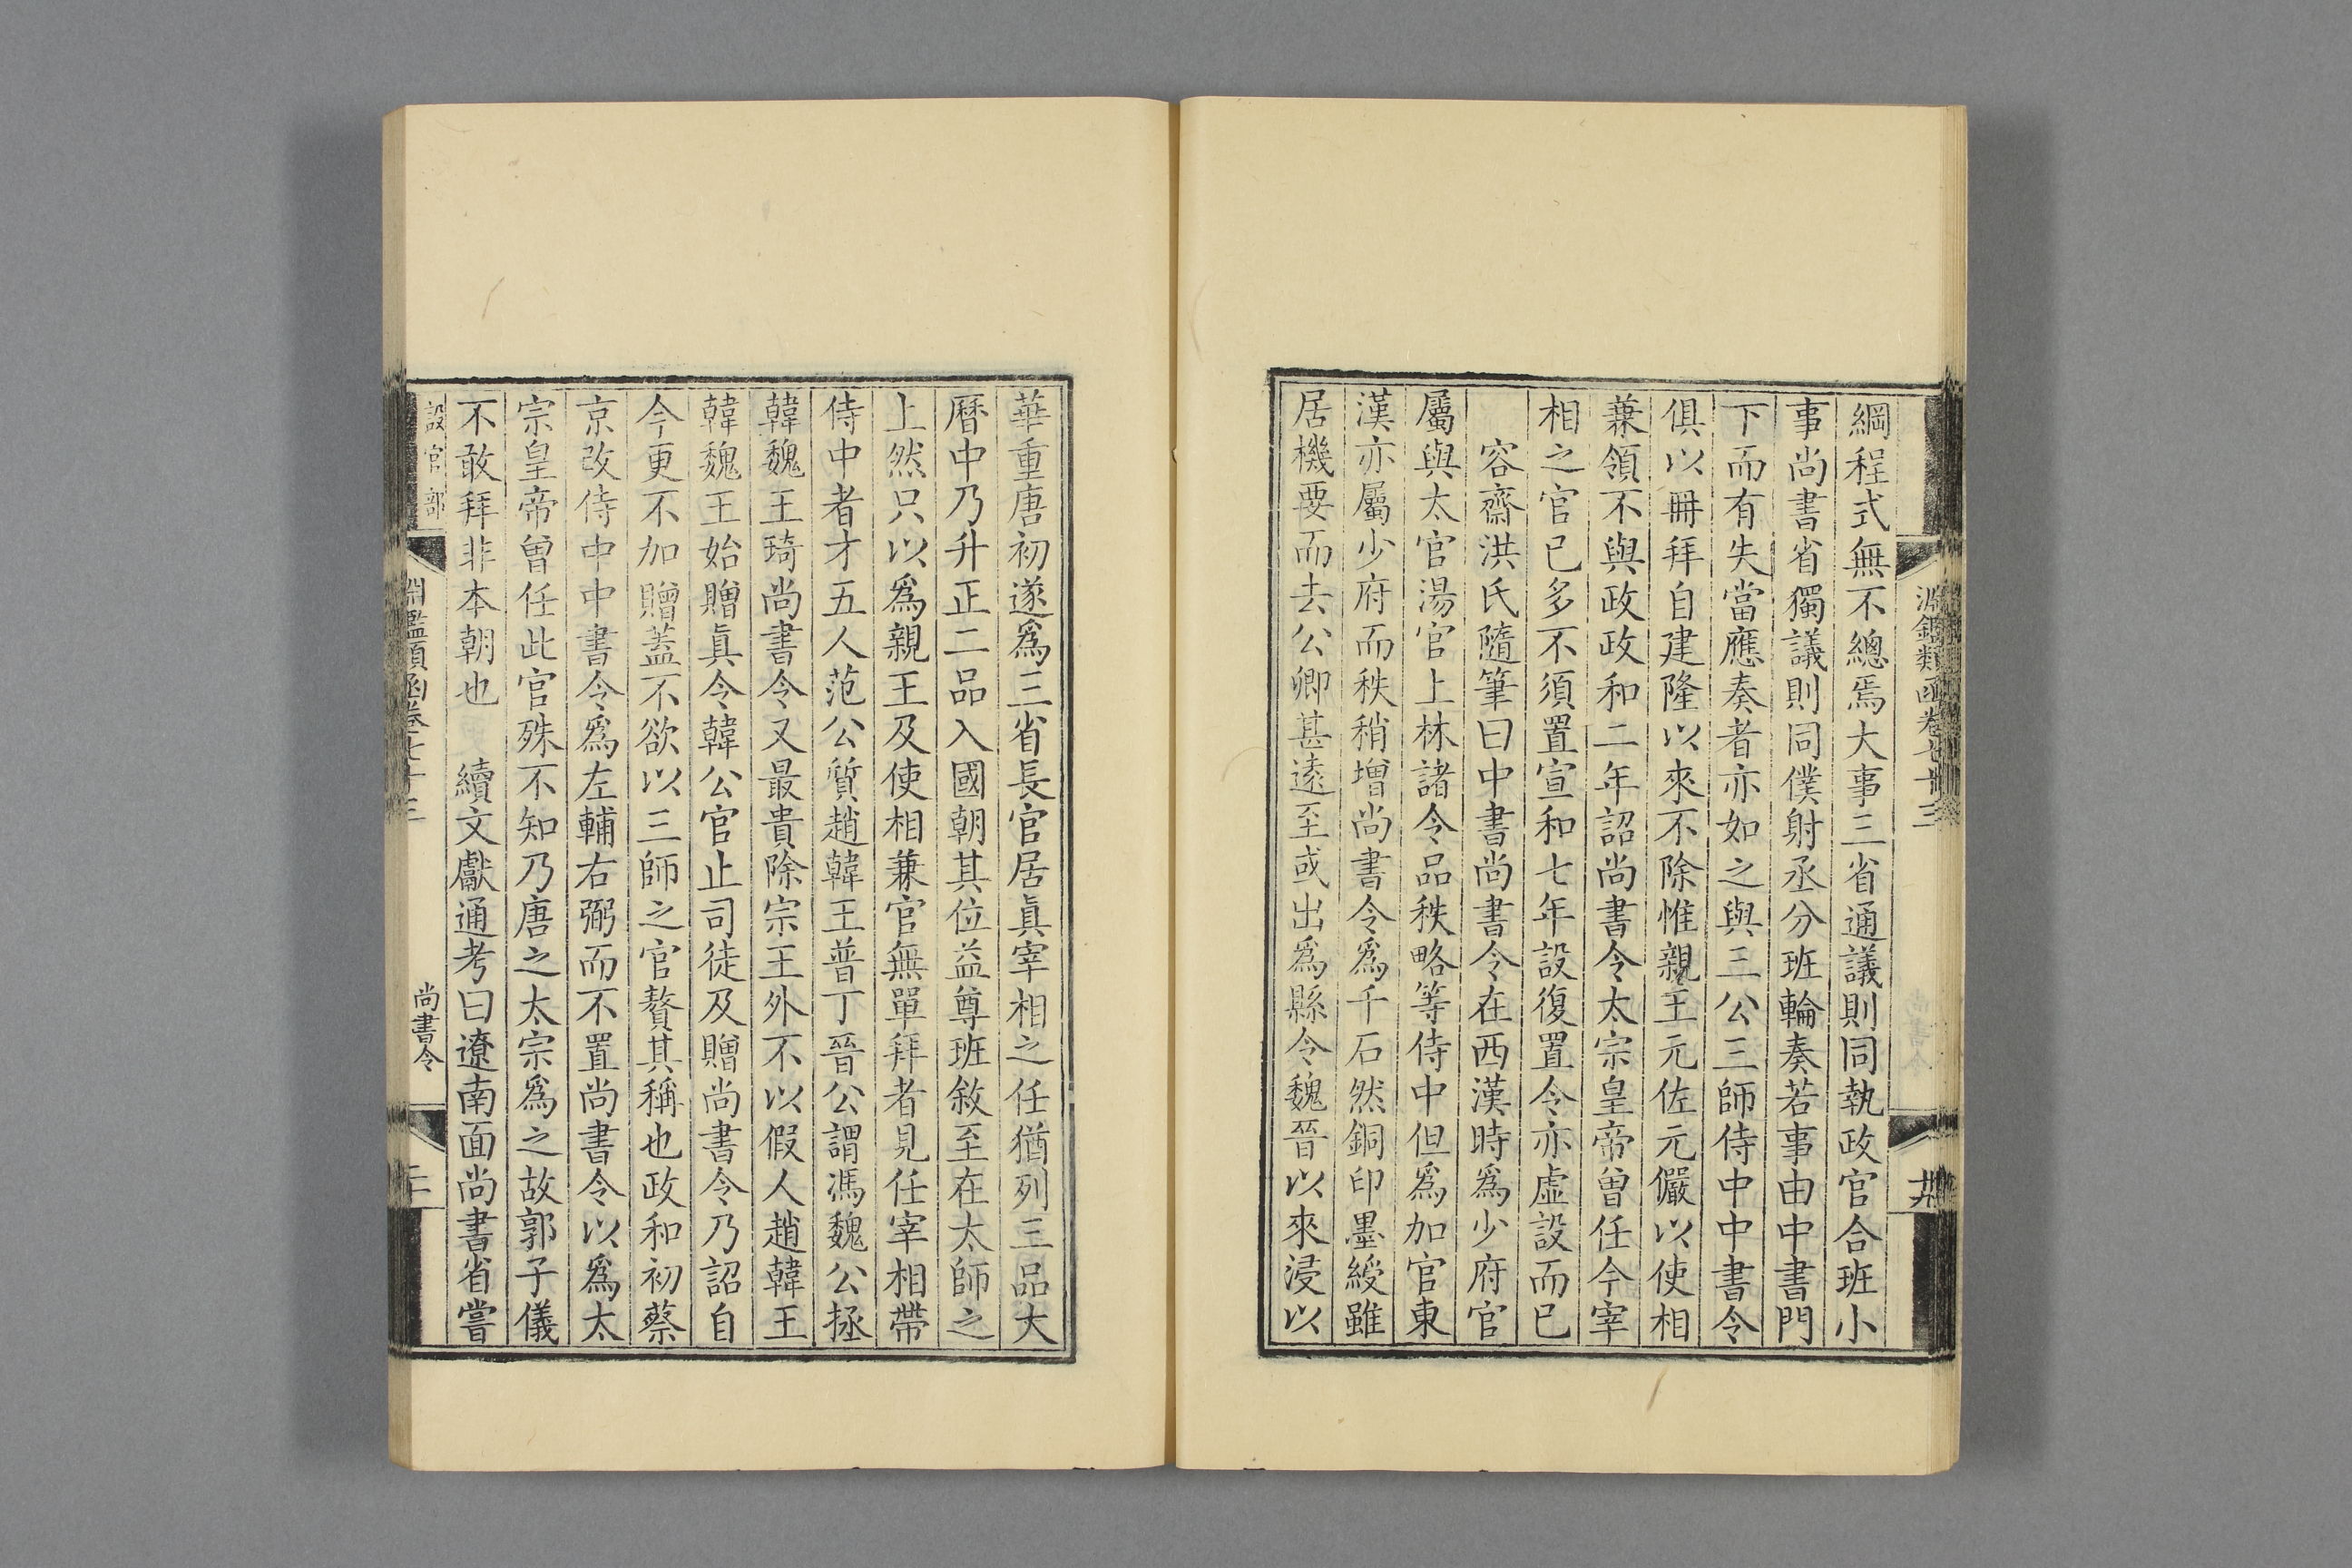 綱程式無不總焉大事三省通議則同執政官合班小
事尚書省獨議則同僕射丞分班輪奏若事由中書門
下而有失當應奏者亦如之與三公三師侍中中書令
俱以冊拜自建隆以來不除惟親王元佐元儼以使相
兼領不與政政和二年詔尚書令太宗皇帝曾任今宰
相之官已多不須置宣和七年設復置令亦虛設而已
容齋洪氏隨筆曰中書尚書令在西漢時爲少府官
屬與太官湯官上林諸令品秩略等侍中但爲加官東
漢亦屬少府而秩稍增尚書令爲千石然銅印墨綬雖
居機要而去公卿甚遠至或出爲縣令魏晉以來浸以
華重唐初遂爲三省長官居眞宰相之任猶列三品大
曆中乃升正二品入國朝其位益尊班敘至在太師之
上然只以爲親王及使相兼官無單拜者見任宰相帶
侍中者才五人范公質趙韓王普丁晉公謂馮魏公拯
韓魏王琦尚書令又最貴除宗王外不以假人趙韓王
韓魏王始贈眞令韓公官止司徒及贈尚書令乃詔自
今更不加贈蓋不欲以三師之官贅其稱也政和初蔡
京改侍中中書令爲左輔右弼而不置尚書令以爲太
宗皇帝曾任此官殊不知乃唐之太宗爲之故郭子儀
不敢拜非本朝也 續文獻通考曰遼南面尚書省嘗
設官部 淵鑑類函卷七十三 尚書令 二